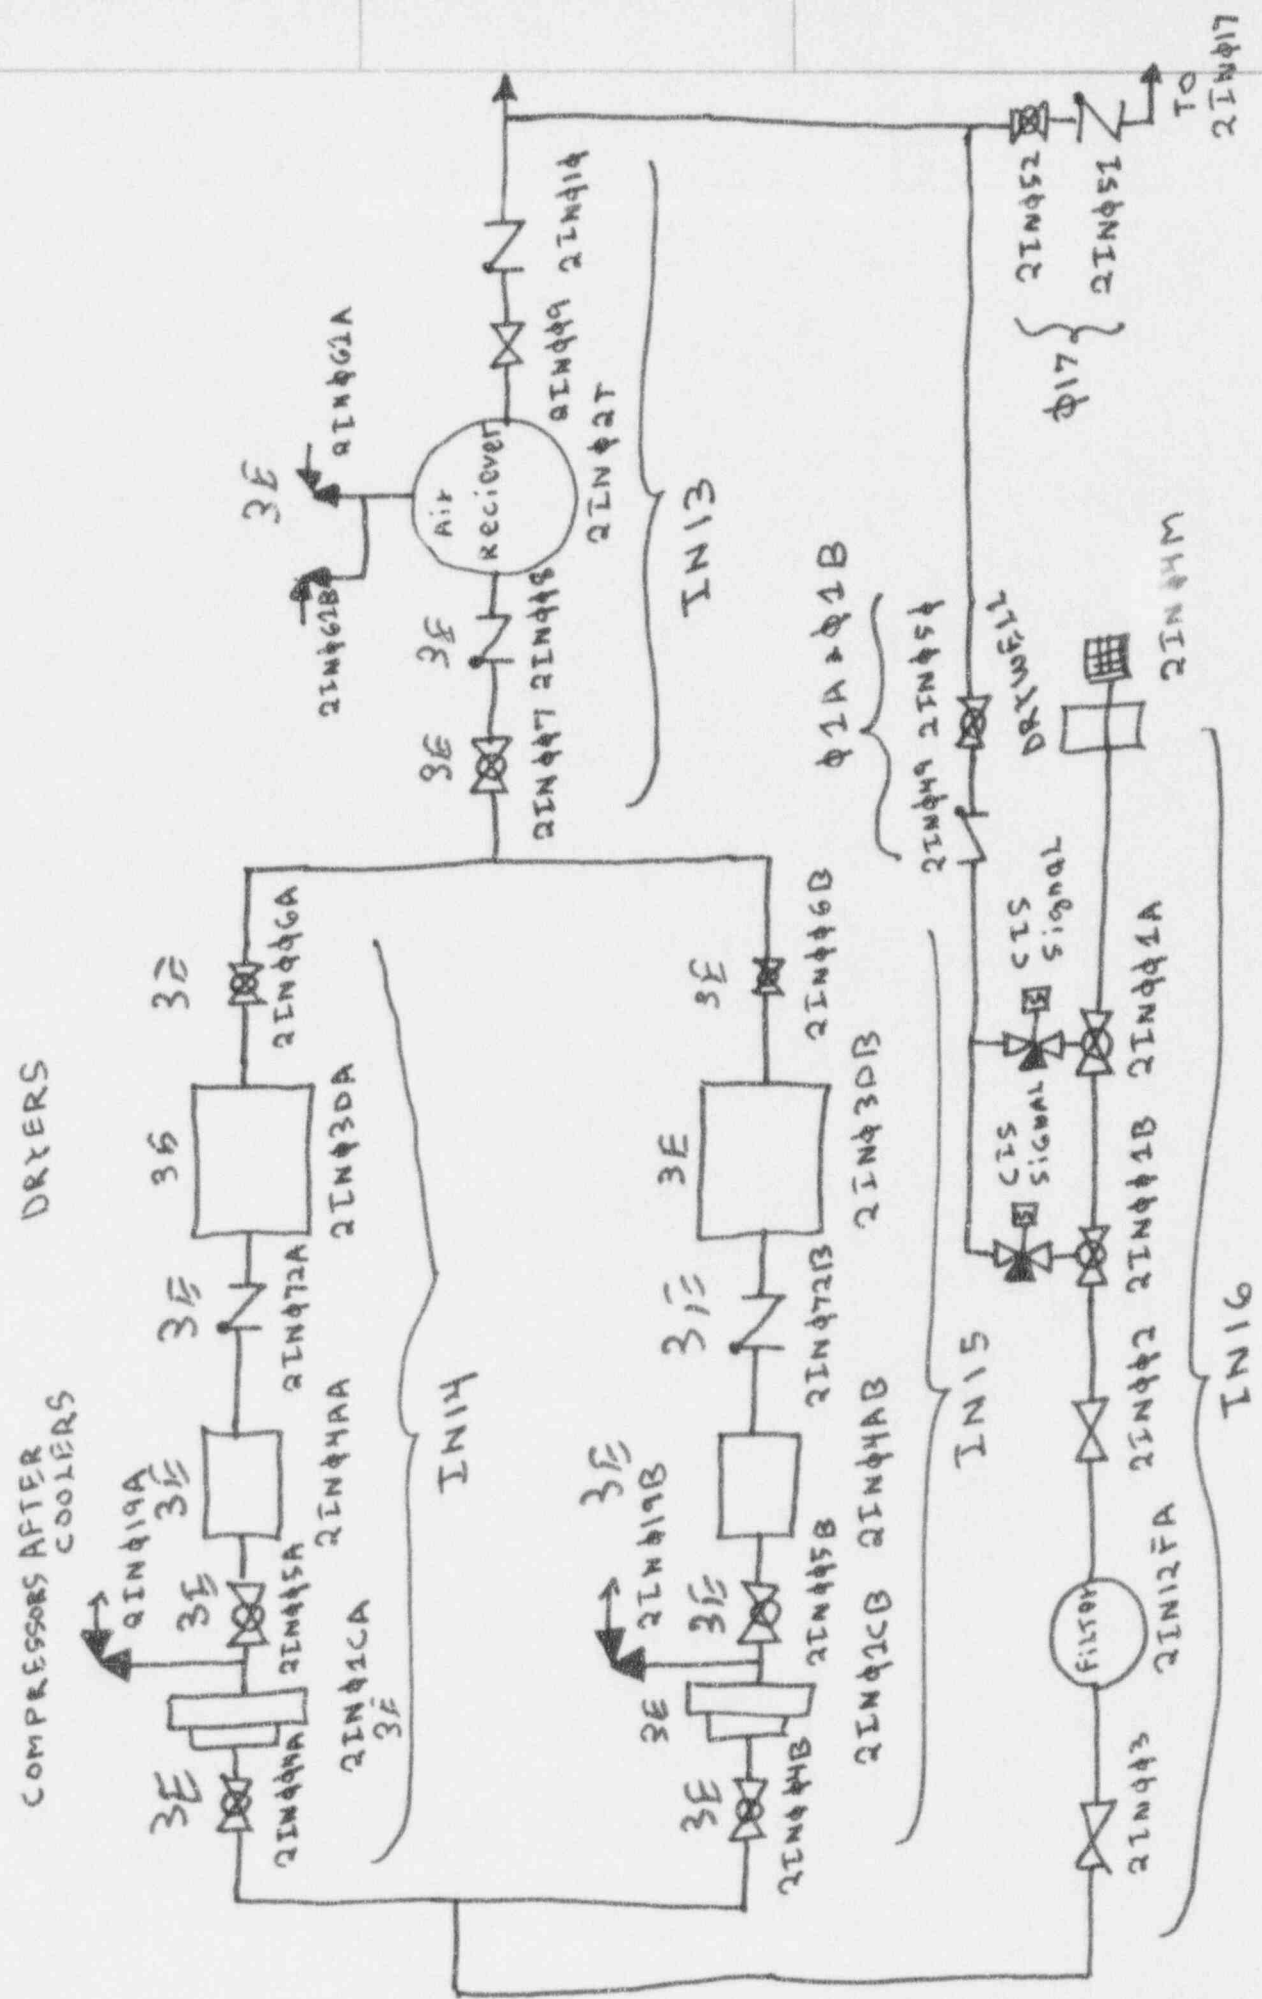 COMPRESSORS AFTER
COOLERS
DRYERS
2INφ19A
3E
3E
3E
3E
3E
3E
2INφφ4A
2INφ1CA
3E
2INφφ5A
2INφ4AA
2INφ72A
2INφ3DA
2INφφ6A
IN14
3E
2INφ19B
3E
3E
3E
3E
3E
3E
2INφφ4B
2INφ1CB
2INφφ5B
2INφ4AB
2INφ72B
2INφ3DB
2INφφ6B
IN15
3E
2INφ61A
2INφ61B
Air
Reciever
3E
3E
2INφφ7
2INφφ8
2INφ2T
2INφφ9
2INφ1φ
IN13
φ1A > φ1B
2INφ49
2INφ5φ
DRYWELL
CIS
SIGNAL
CIS
Signal
2INφφ3
FILTER
2IN12FA
2INφφ2
2INφφ1B
2INφφ1A
2INφ4M
IN16
2INφ52
2INφ51
φ17
TO
2INφ17